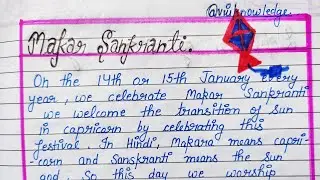 @viviknowledge
Makar Sankranti.
On the 14th or 15th January every
year, we celebrate Makar Sankranti
we welcome the transition of sun
in capricorn by celebrating this
festival. In Hindi, Makara means capri-
corn and Sanskranti means the sun
god. So this day we worship